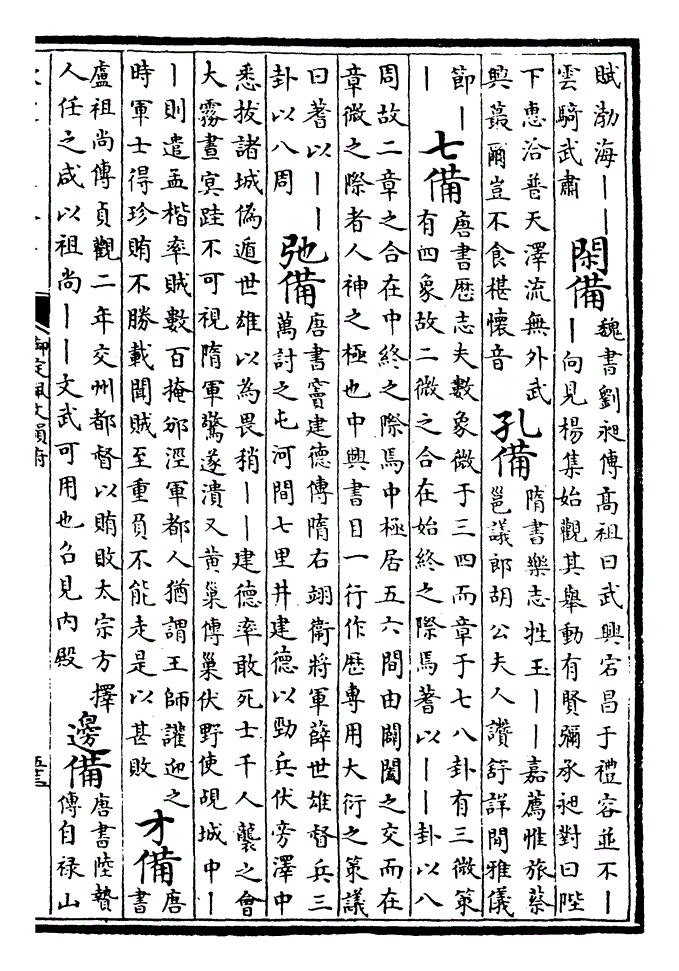 賦渤海丨丨
雲騎武肅
閑備
魏書劉昶傳高祖曰武興宕昌于禮容並不丨
丨向見楊集始觀其舉動有賢彌承昶對曰陛
下惠洽普天澤流無外武
興蕞爾豈不食椹懷音
孔備
隋書樂志牲玉丨丨嘉薦惟旅蔡
邕議郎胡公夫人讚舒詳閒雅儀
節丨
丨
七備
唐書歴志夫數象微于三四而章于七八卦有三微策
有四象故二微之合在始終之際焉蓍以丨丨卦以八
周故二章之合在中終之際焉中極居五六間由闢闔之交而在
章微之際者人神之極也中興書目一行作歴專用大衍之策議
曰蓍以丨丨
卦以八周
弛備
唐書竇建德傳隋右翊衞將軍薛世雄督兵三
萬討之屯河間七里井建德以勁兵伏旁澤中
悉拔諸城偽遁世雄以為畏稍丨丨建德率敢死士千人襲之會
大霧晝冥跬不可視隋軍驚遂潰又黄巢傳巢伏野使覘城中丨
丨則遣孟楷率賊數百掩邠涇軍都人猶謂王師讙迎之
時軍士得珍賄不勝載聞賊至重負不能走是以甚敗
才備
唐
書
盧祖尚傳貞觀二年交州都督以賄敗太宗方擇
人任之咸以祖尚丨丨文武可用也召見内殿
邊備
唐書陸贄
傳自禄山
御定佩文韻府